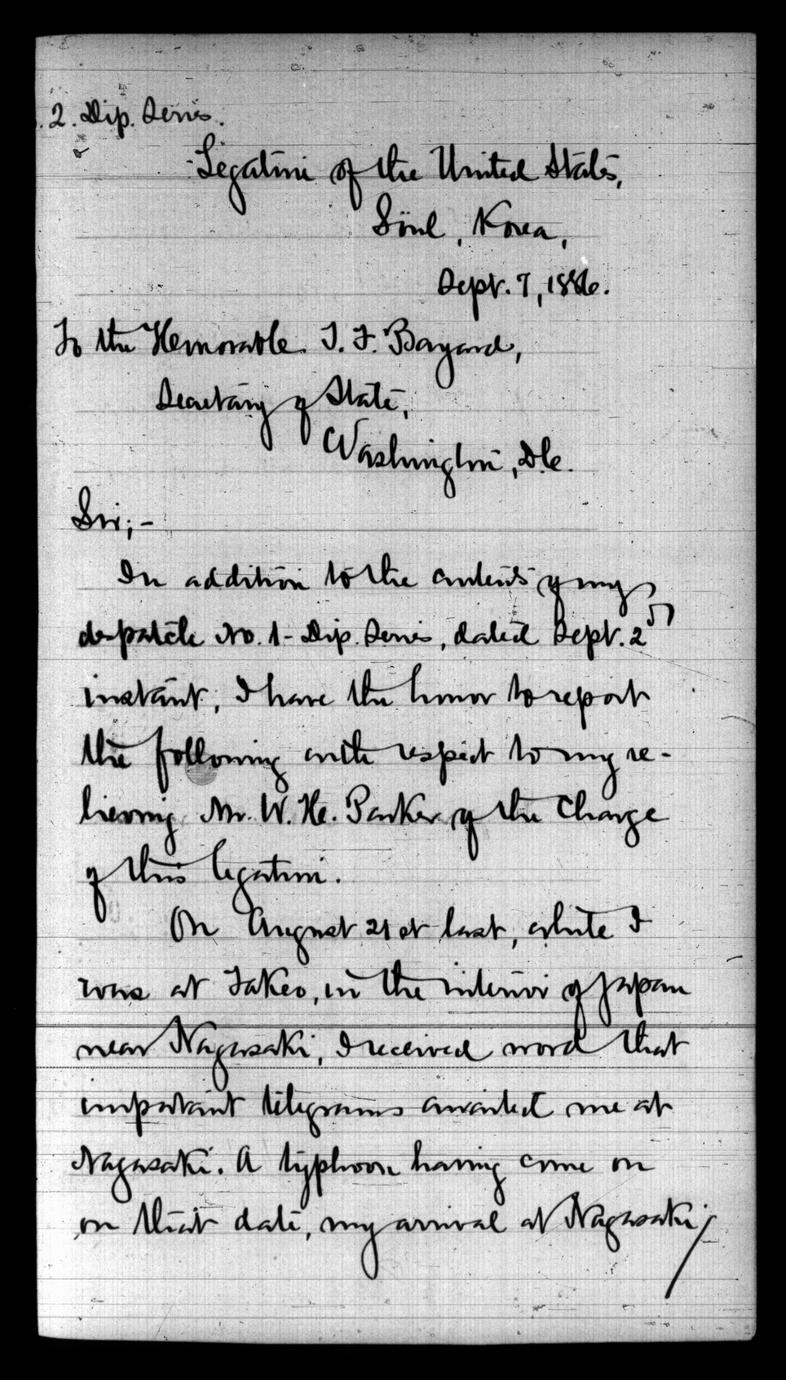 . 2. Dip. Series.
Legation of the United States,
Söul, Korea,
Sept. 7, 1886.
To the Honorable T. F. Bayard,
Secretary of State,
Washington, D.C.
Sir;-
In addition to the contents of my
despatch No. 1 - Dip. Series, dated Sept. 2
instant, I have the honor to report
the following with respect to my re-
lieving Mr. W. H. Parker of the charge
of this legation.
On August 21st last, while I
was at Takeo, in the interior of Japan
near Nagasaki, I received word that
important telegrams awaited me at
Nagasaki. A typhoon having come on
on that date, my arrival at Nagasaki